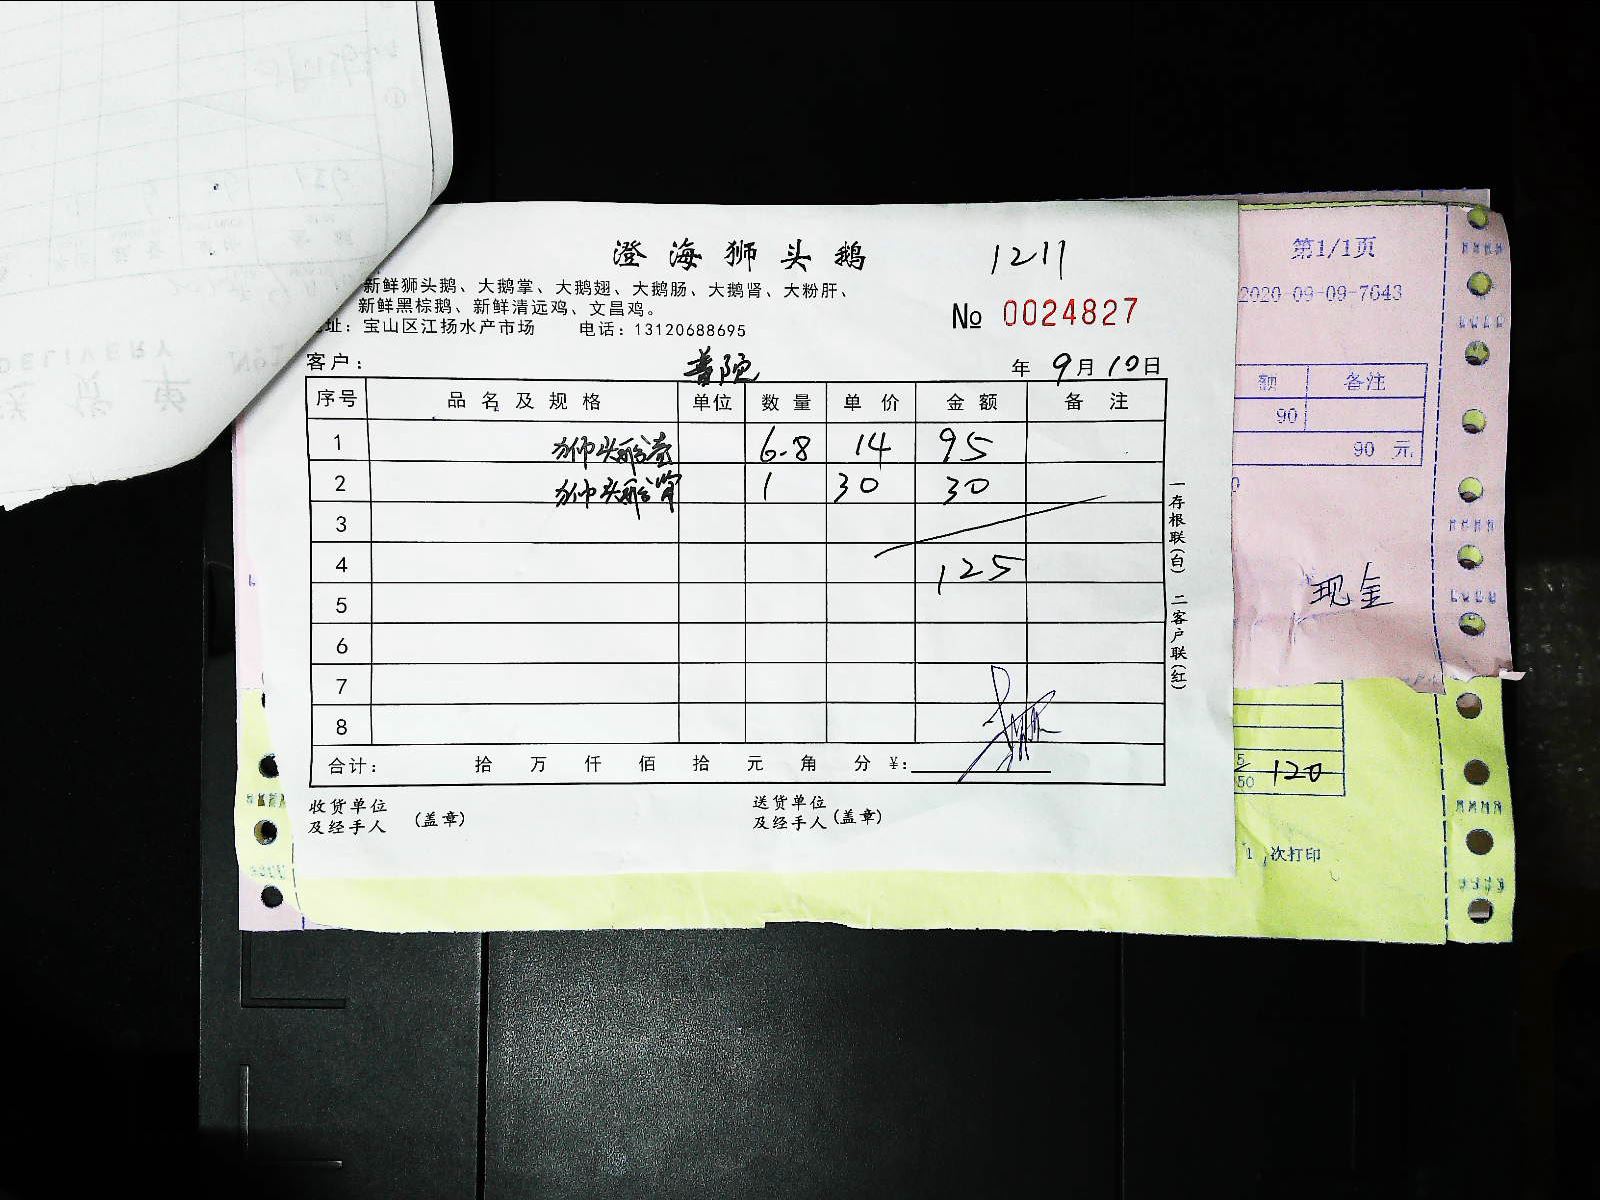 澄海狮头鹅
1211
新鲜狮头鹅、大鹅掌、大鹅翅、大鹅肠、大鹅肾、大粉肝、
新鲜黑棕鹅、新鲜清远鸡、文昌鸡。
址：宝山区江扬水产市场 电话：13120688695
№ 0024827
客户： 普陀 年 9月10日
序号 品名及规格 单位 数量 单价 金额 备注
1 狮头鹅 6.8 14 95
2 狮头鹅肾 1 30 30
3
4 125
5
6
7
8
合计： 拾 万 仟 佰 拾 元 角 分 ¥：
收货单位 送货单位
及经手人 (盖章) 及经手人 (盖章)
一存根联(白) 二客户联(红)
第1/1页
2020-09-09-7643
额 备注
90
90 元
现金
50 120
1 次打印
DELIVERY